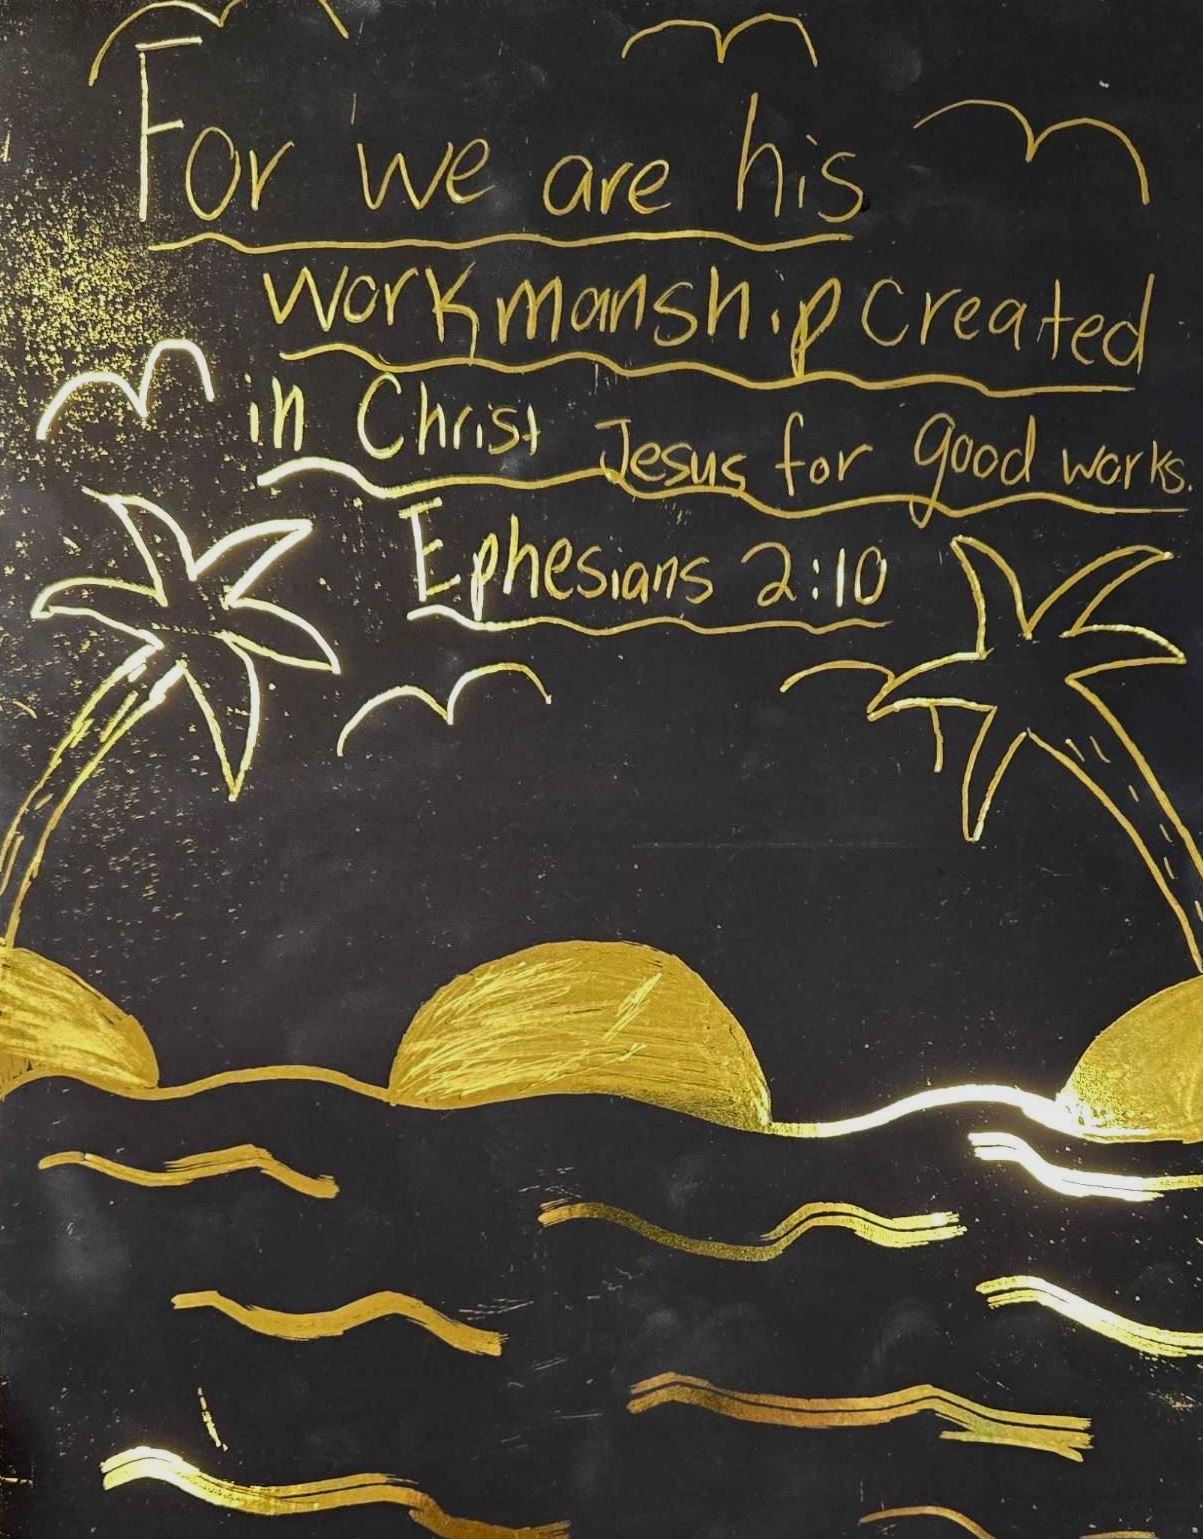 For we are his
workmanship created
in Christ Jesus for good works.
Ephesians 2:10